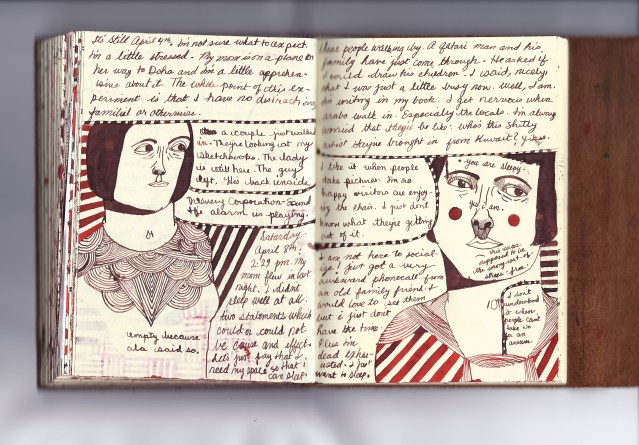 It's still April 4th. I'm not sure what to expect.
I'm a little stressed. My mom is on a plane on
her way to Doha and I'm a little apprehen-
sive about it. The whole point of this ex-
periment is that I have no distractions
familial or otherwise.
a couple just walked
in. They're looking at my
sketchbooks. The lady
is still here. The guy
left. He's back inside
Memory Corporation sound
the alarm is playing.
Saturday
April 9th,
2:29 pm. My
mom flew in last
night. I didn't
sleep well at all.
two statements which
could or could not
be cause and effect.
Let's just say that I
need my space so that i
can sleep.
empty because
ala said so,
hear people walking by. A Qatari man and his
family have just come through. He asked if
I could draw his children. I said, nicely
that I was just a little busy now. Well, I am.
I'm writing in my book. I get nervous when
arabs walk in. Especially the locals. I'm always
worried that they're like: who's this shitty
artist they've brought in from Kuwait? yikes.
I like it when people
take pictures. I'm so
happy visitors are enjoy-
ing the chair. I just don't
know what they're getting
out of it.
am not here to social-
ize! I just got a very
awkward phonecall from
an old family friend. I
would love to see them
but i just don't
have the time
Plus I'm
dead exhau-
sted. I just
want to sleep.
you are sleepy.
yes i am.
this week
supposed to be
stress-free.
I don't
understand
it when
people can't
take No
for an
answer.